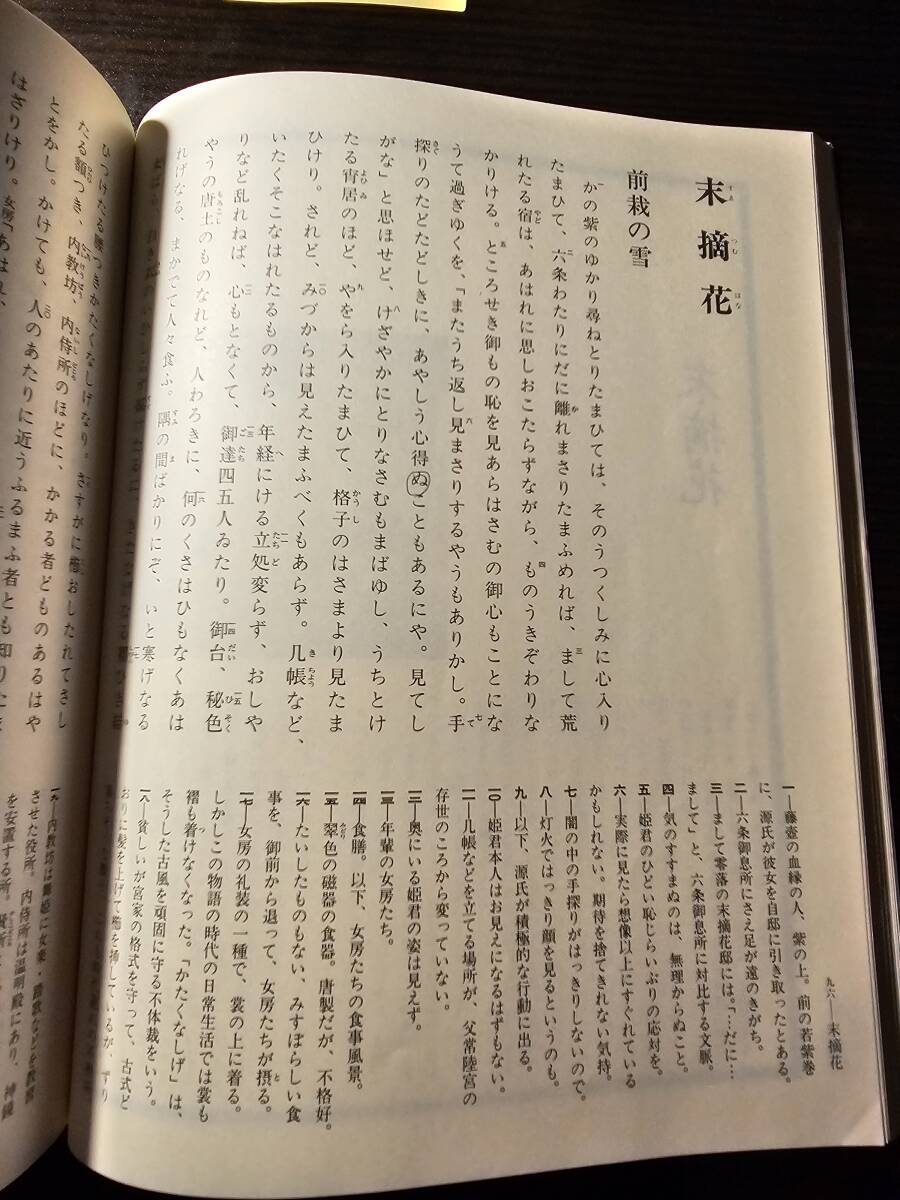 末摘花
前栽の雪
かの紫のゆかり尋ねとりたまひては、そのうつくしみに心入り
たまひて、六条わたりにだに離れまさりたまふめれば、まして荒
れたる宿は、あはれに思しおこたらずながら、ものうきぞわりな
かりける。ところせき御もの恥を見あらはさむの御心もことにな
うて過ぎゆくを、「またうち返し見まさりするやうもありかし。手
探りのたどたどしきに、あやしう心得ぬこともあるにや。見てし
がな」と思ほせど、けざやかにとりなさむもまばゆし、うちとけ
たる宵居のほど、やをら入りたまひて、格子のはさまより見たま
ひけり。されど、みづからは見えたまふべくもあらず。几帳など、
いたくそこなはれたるものから、年経にける立処変らず、おしや
りなど乱れねば、心もとなくて、御達四五人ゐたり。御台、秘色
やうの唐土のものなれど、人わろきに、何のくさはひもなくあは
れげなる、まかでて人々食ふ。隅の間ばかりにぞ、いと寒げなる
ひつけたる腰つきかたくなしげなり。さすがに櫛おしたれてさし
たる額つき、内教坊、内侍所のほどに、かかる者どものあるはや
とをかし。かけても、人のあたりに近うふるまふ者とも知りたま
はざりけり。女房「あはれ、
九六——末摘花
一—藤壺の血縁の人、紫の上。前の若紫巻
に、源氏が彼女を自邸に引き取ったとある。
二—六条御息所にさえ足が遠のきがち。
三—まして零落の末摘花邸には。「…だに…
まして」と、六条御息所に対比する文脈。
四—気のすすまぬのは、無理からぬこと。
五—姫君のひどい恥じらいぶりの応対を。
六—実際に見たら想像以上にすぐれている
かもしれない。期待を捨てきれない気持。
七—闇の中の手探りがはっきりしないので。
八—灯火ではっきり顔を見るというのも。
九—以下、源氏が積極的な行動に出る。
一〇—姫君本人はお見えになるはずもない。
一一—几帳などを立てる場所が、父常陸宮の
存世のころから変っていない。
一二—奥にいる姫君の姿は見えず。
一三—年輩の女房たち。
一四—食膳。以下、女房たちの食事風景。
一五—翠色の磁器の食器。唐製だが、不格好。
一六—たいしたものもない、みすぼらしい食
事を、御前から退って、女房たちが摂る。
一七—女房の礼装の一種で、裳の上に着る。
しかしこの物語の時代の日常生活では裳も
褶も着けなくなった。「かたくなしげ」は、
そうした古風を頑固に守る不体裁をいう。
一八—貧しいが宮家の格式を守って、古式ど
おりに髪を上げて櫛を挿しているが、ずり
一九—内教坊は舞姫に女楽・踏歌などを教授
させた役所。内侍所は温明殿にあり、神鏡
を安置する所。